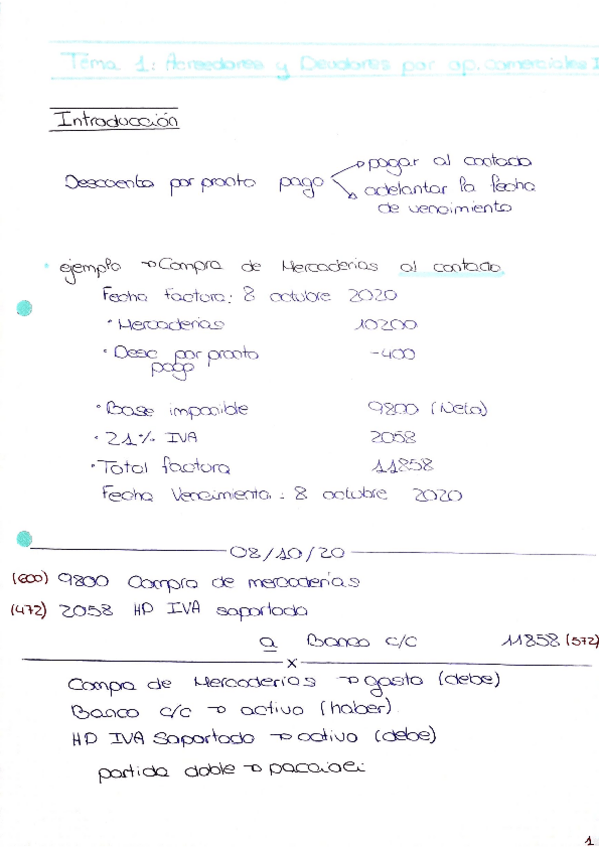 Tema 1: Acreedores y Deudores por op. comerciales I
Introducción
Descuento por pronto pago → pagar al contado
→ adelantar la fecha
de vencimiento
• ejemplo → Compra de Mercaderías al contado
Fecha factura: 8 octubre 2020
• Mercaderías 10200
• Desc por pronto -400
pago
• Base imponible 9800 (Neto)
• 21% IVA 2058
• Total factura 11858
Fecha Vencimiento: 8 octubre 2020
08/10/20
(600) 9800 Compra de mercaderías
(472) 2058 HP IVA soportado
a Banco c/c 11858 (572)
x
Compra de Mercaderías → gasto (debe)
Banco c/c → activo (haber)
HP IVA Soportado → activo (debe)
partida doble →
1